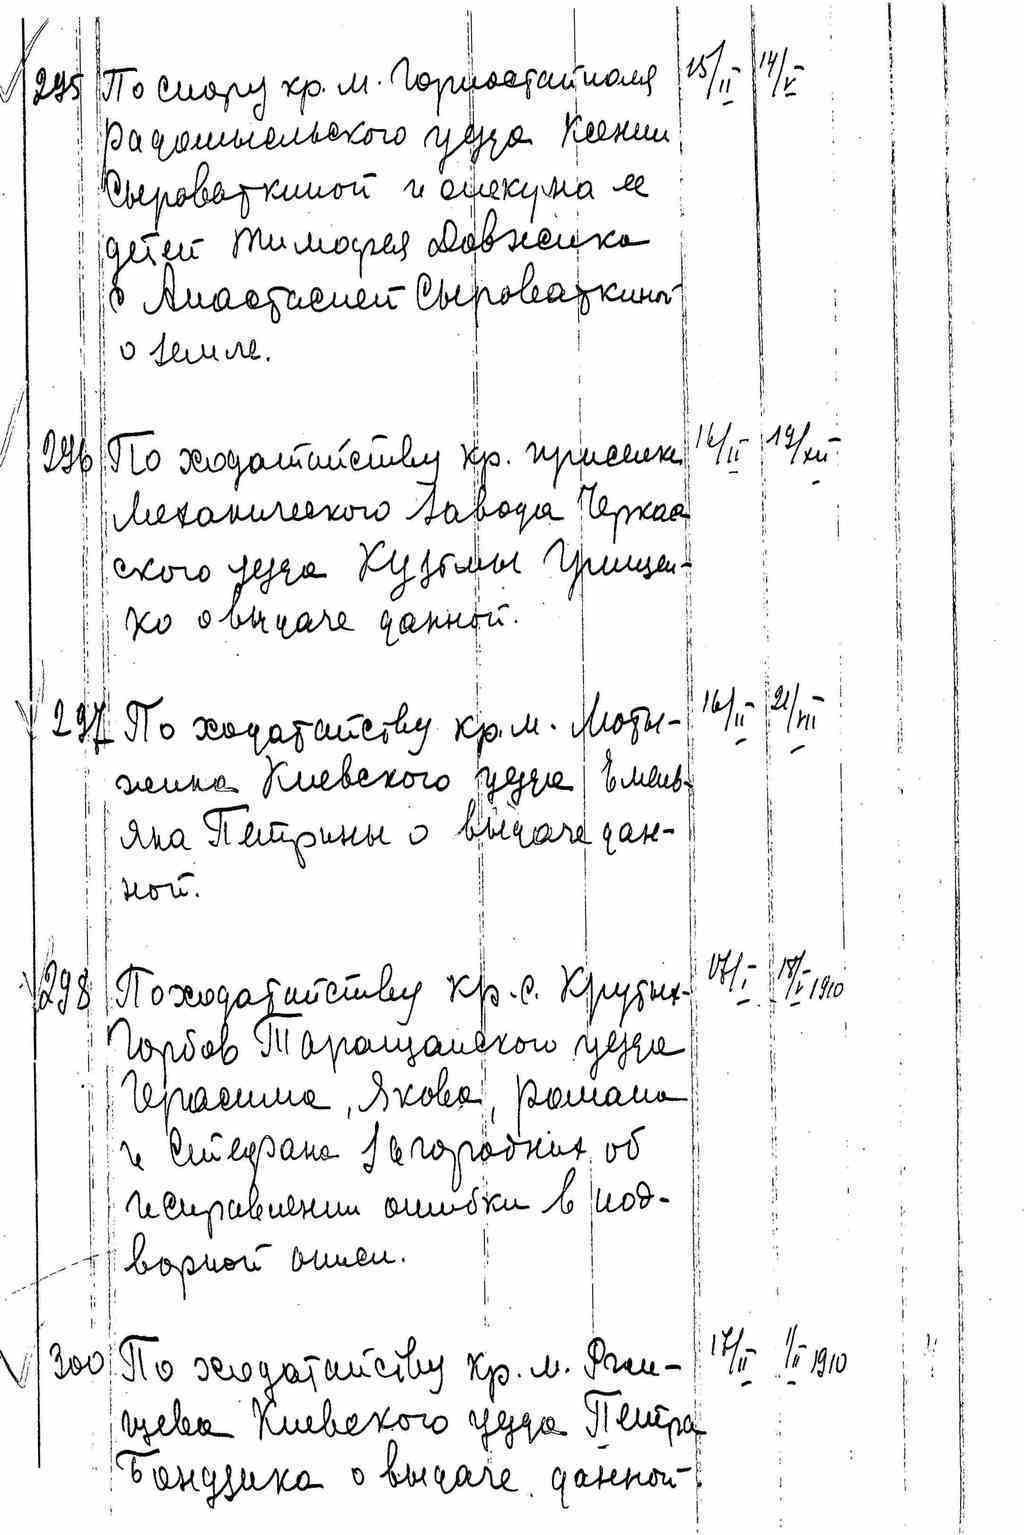 295 По спору кр. м. Горностайполя 15/II 14/V
Радомысльского уезда Ксении
Сыроваткиной и опекуна ее
детей Тимофея Довжика
с Анастасией Сыроваткиной
о земле.
296 По ходатайству кр. приселка 16/II 19/XII
Механического завода Черкас
ского уезда Кузьмы Грищен-
ко о выдаче данной.
297 По ходатайству кр. м. Моты- 16/II 21/XII
жина Киевского уезда Емель-
яна Петрины о выдаче дан-
ной.
298 По ходатайству кр. с. Крутых- 17/I 18/V 1910
Горбов Таращанского уезда
Герасима, Якова, Романа
и Стефана Загородних об
исправлении ошибки в под-
ворной описи.
300 По ходатайству кр. м. Ржи- 17/II 1/II 1910
щева Киевского уезда Петра
Бондзика о выдаче данной.